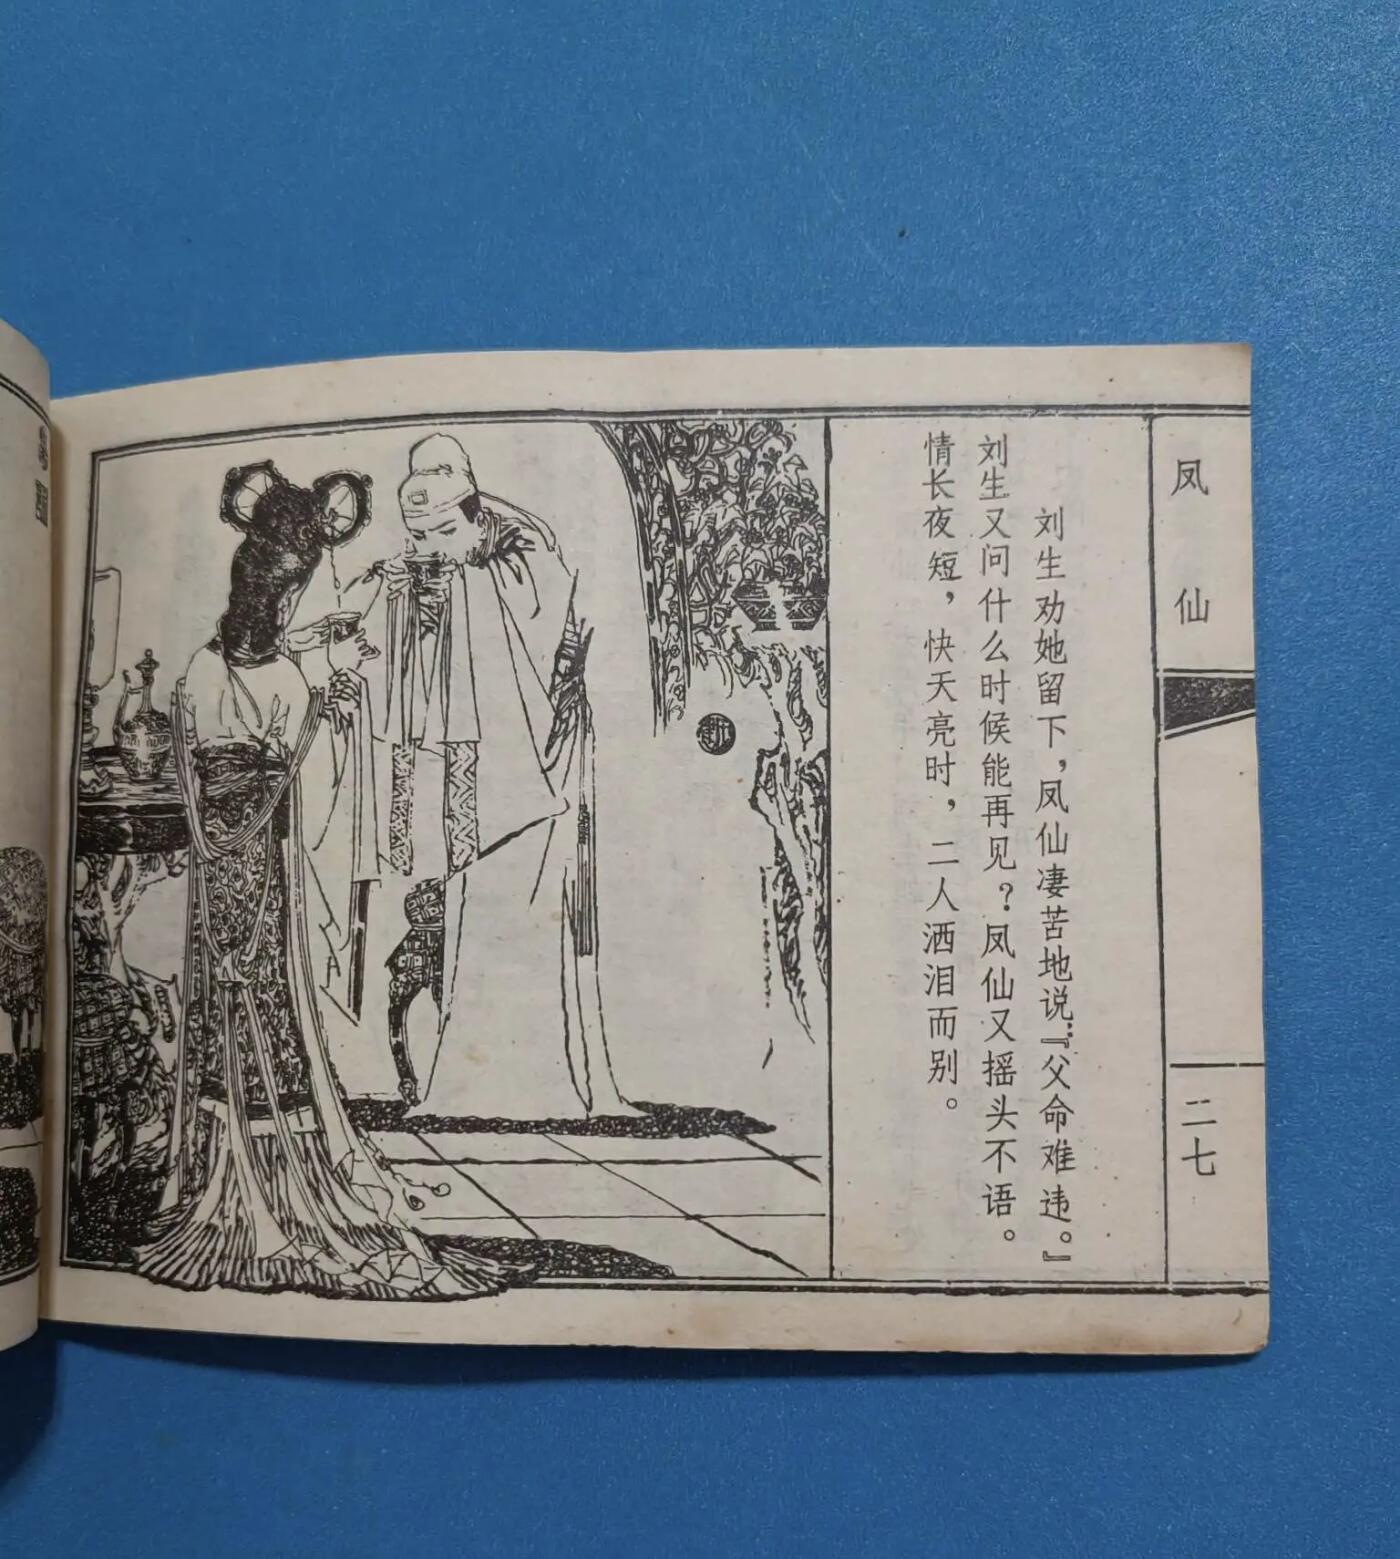 凤仙
刘生劝她留下，凤仙凄苦地说：『父命难违。』
刘生又问什么时候能再见？凤仙又摇头不语。
情长夜短，快天亮时，二人洒泪而别。
二七